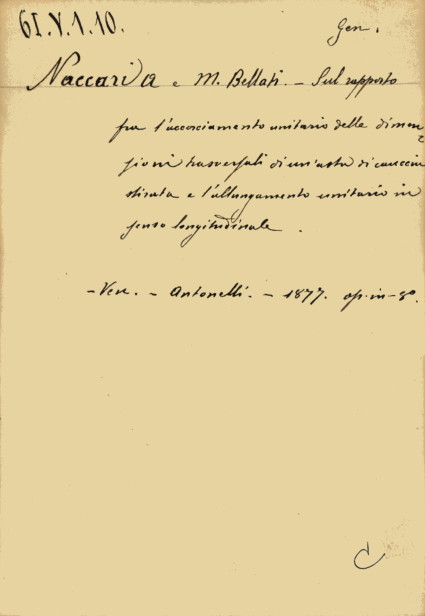 61.V.1.10.
Gen.
Naccari A e M. Bellati. - Sul rapporto
fra l'accorciamento unitario delle dimen-
sioni trasversali di un'asta di caucciù
stirata e l'allungamento unitario in
senso longitudinale.
- Ven. - Antonelli. - 1877. op. in-8º.
C